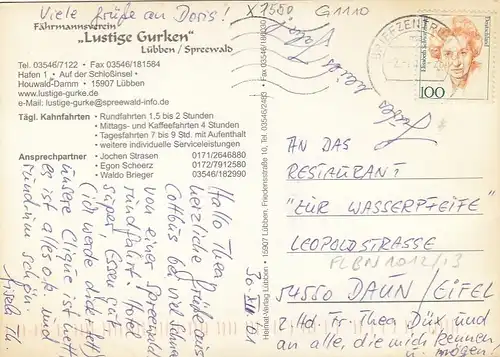 Viele Grüße an Doris!
X 1550
G1110
Fährmannsverein
"Lustige Gurken"
Lübben / Spreewald
Tel. 03546/7122 • Fax 03546/181584
Hafen 1 • Auf der Schloßinsel •
Houwald-Damm • 15907 Lübben
www.lustige-gurke.de
e-Mail: lustige-gurke@spreewald-info.de
Tägl. Kahnfahrten • Rundfahrten 1,5 bis 2 Stunden
• Mittags- und Kaffeefahrten 4 Stunden
• Tagesfahrten 7 bis 9 Std. mit Aufenthalt
• weitere individuelle Serviceleistungen
Ansprechpartner • Jochen Strasen 0171/2646880
• Egon Scheerz 0172/7912580
• Waldo Brieger 03546/182990
30.
Hallo Thea
herzliche Grüße aus
Cottbus bei viel
von einer Spreewald
rundfahrt! Hotel
super, Essen zu
(ich werde dick + fett)
unsere Clique ist nett
er ist alles o.k. und
rundrum schön.
Heimat-Verlag Lübben • 15907 Lübben, Friedensstraße 10, Tel. 03546/2483 • Fax 03546/189300
BRIEFZENTRUM
Deutschland
100
AN DAS
RESTAURANT
"ZUR WASSERPFEIFE"
LEOPOLDSTRASSE
FLBN 1012/13
54550 DAUN/EIFEL
z. Hd. Fr. Thea Düx und
an alle, die mich kennen
u. mögen!